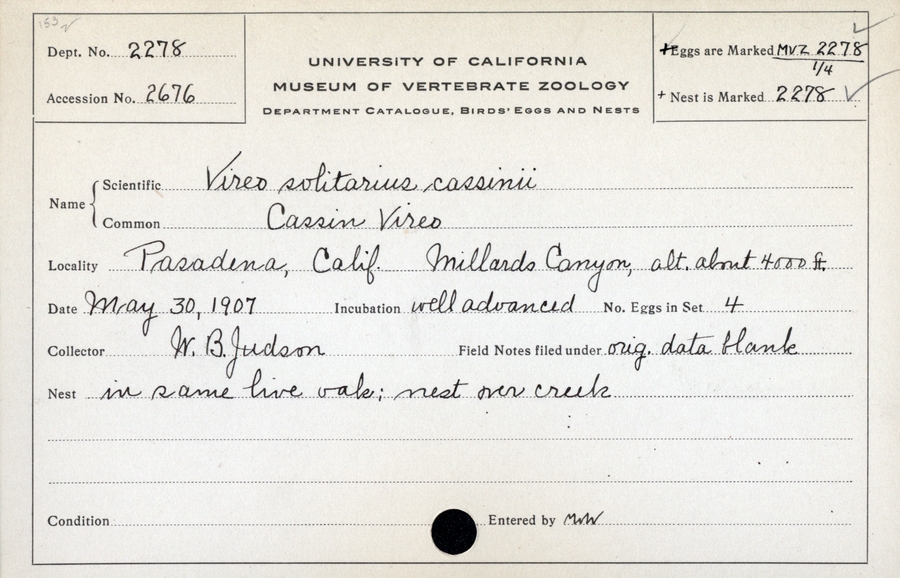 153
Dept. No. 2278
Accession No. 2676
UNIVERSITY OF CALIFORNIA
MUSEUM OF VERTEBRATE ZOOLOGY
DEPARTMENT CATALOGUE, BIRDS' EGGS AND NESTS
+Eggs are Marked MVZ 2278
1/4
+ Nest is Marked 2278
Name
Scientific Vireo solitarius cassinii
Common Cassin Vireo
Locality Pasadena, Calif. Millards Canyon, alt. about 4000 ft.
Date May 30, 1907 Incubation well advanced No. Eggs in Set 4
Collector W. B. Judson Field Notes filed under orig. data blank
Nest in same live oak; nest over creek
Condition Entered by